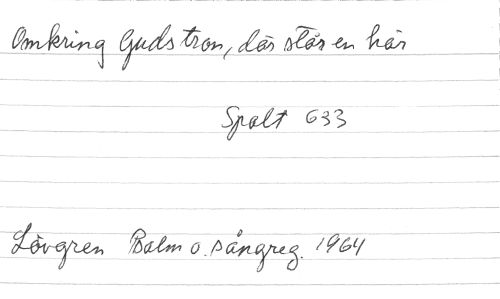 Omkring Guds tron, där står en här
Spalt 633
Lövgren Psalm o. sångreg. 1964